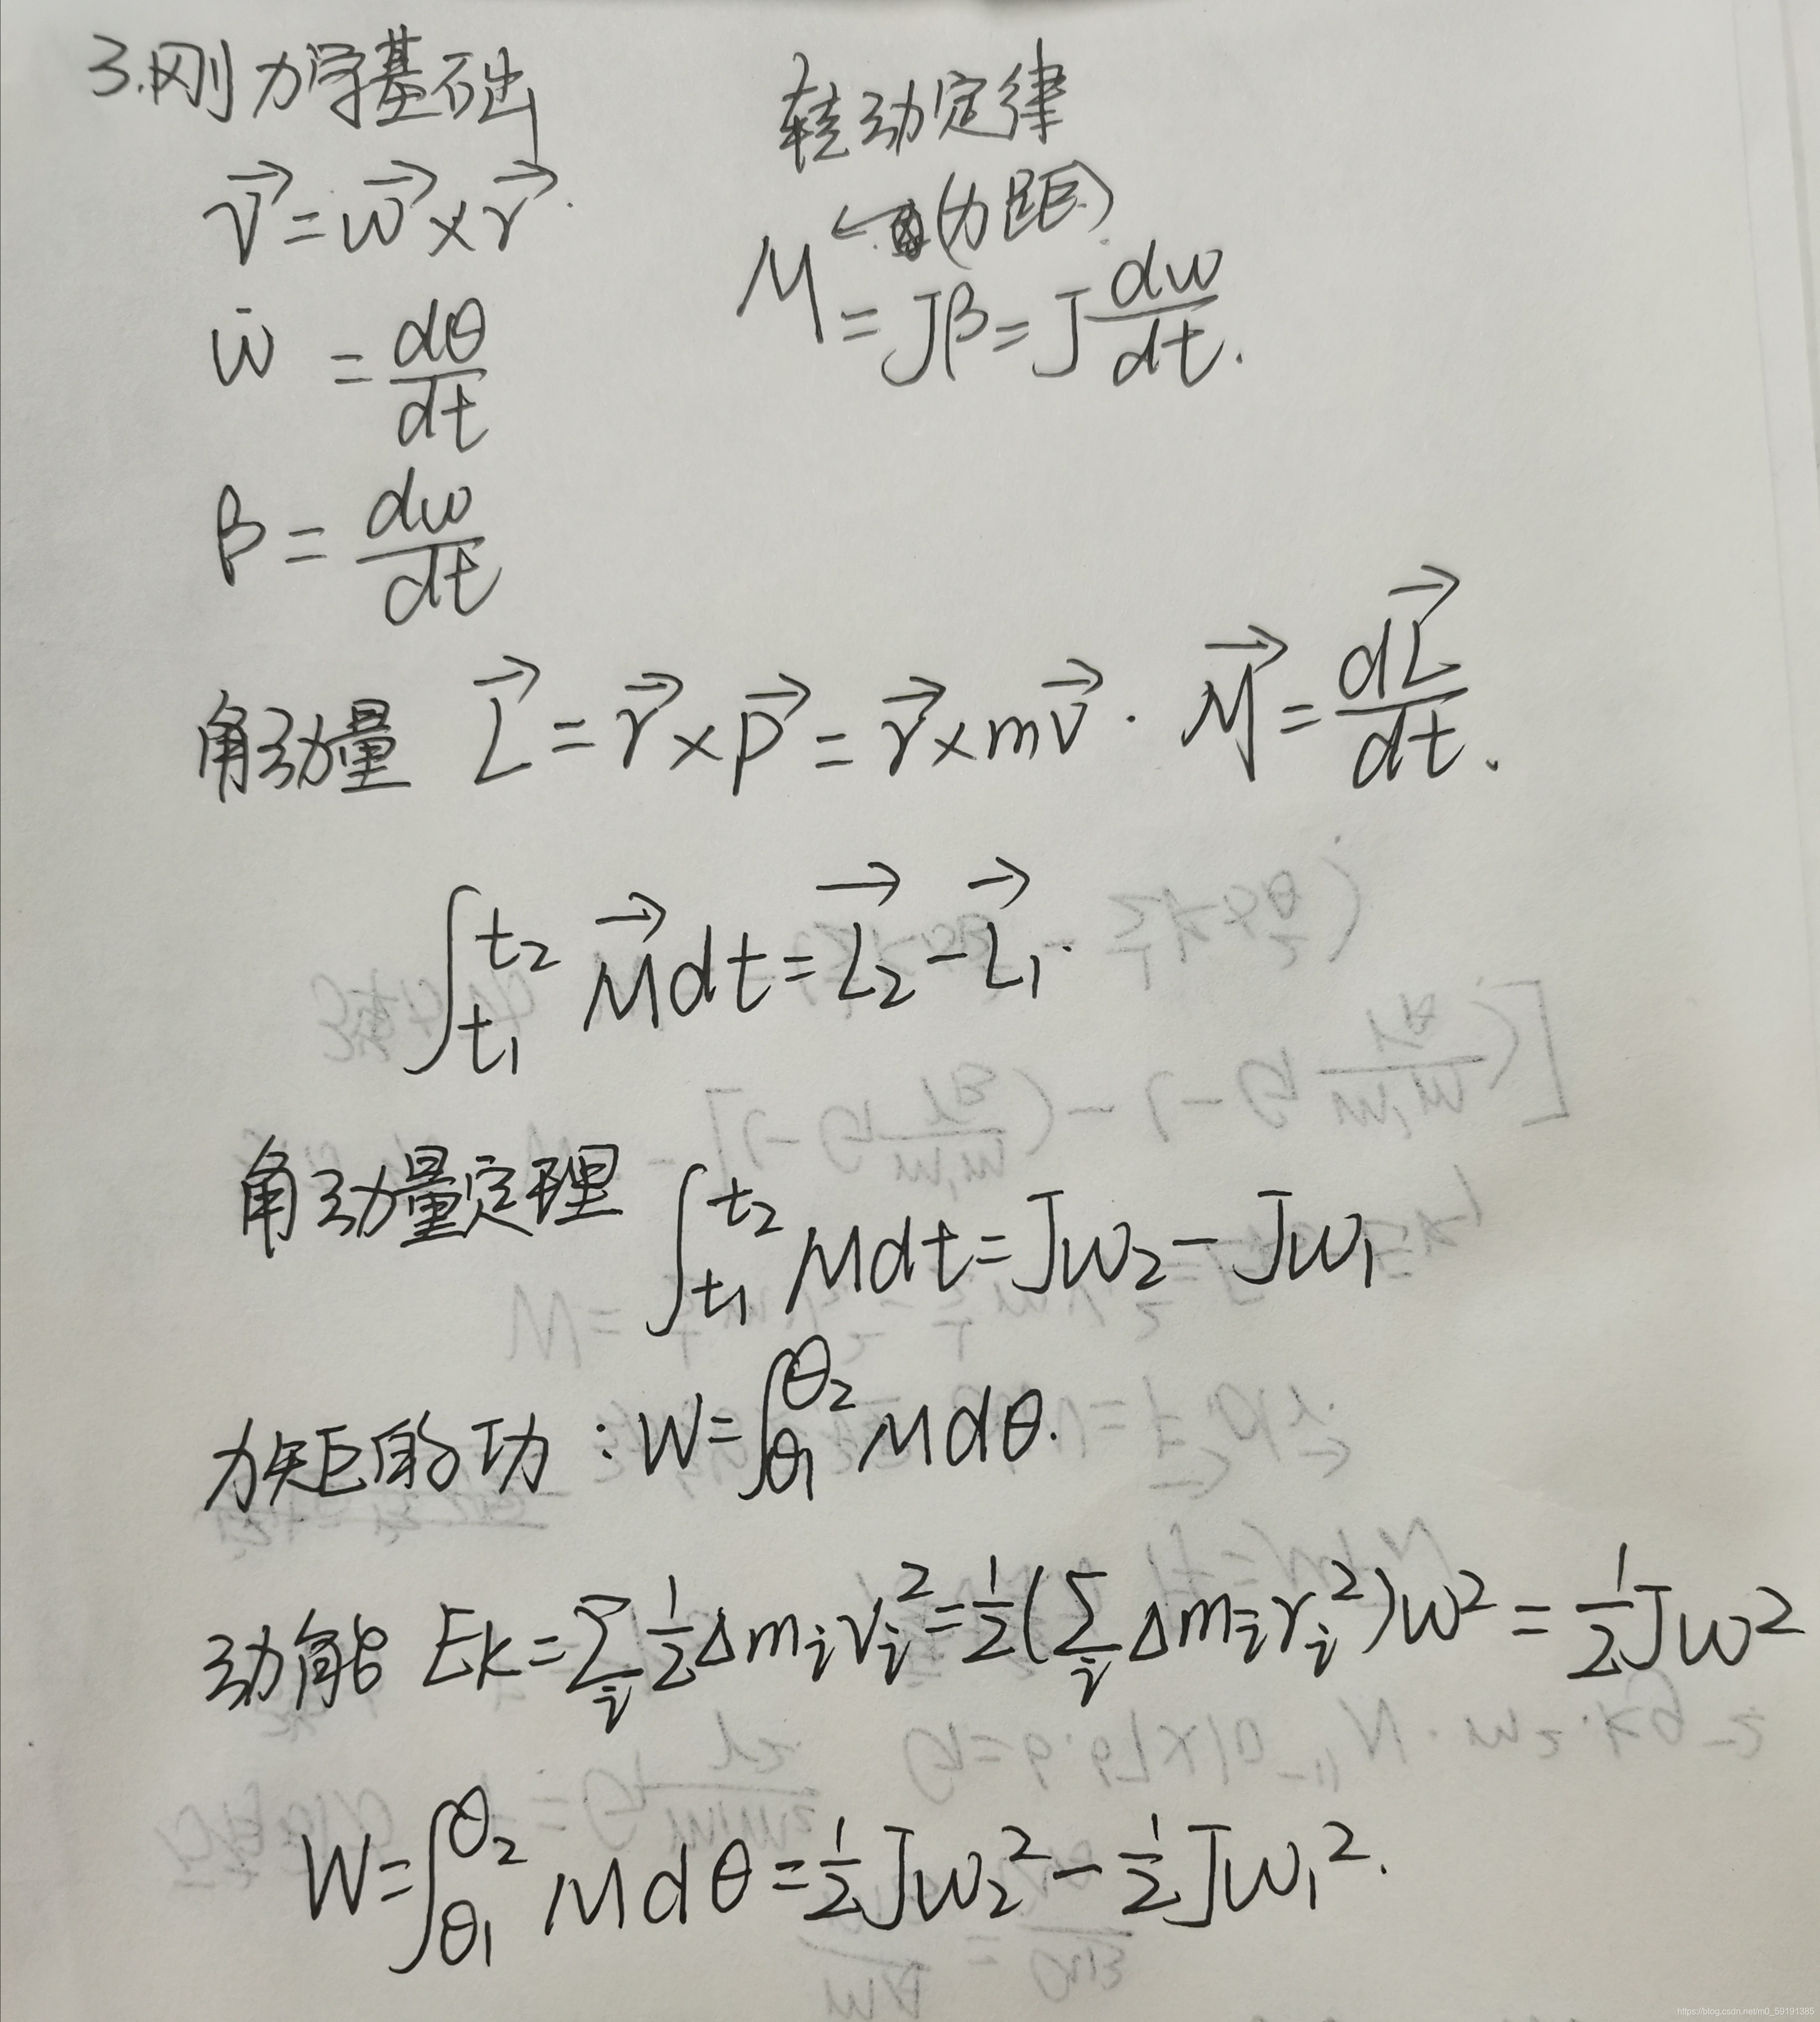 3.刚力学基础
转动定律
v⃗=ω⃗×r⃗.
(力距)
M=Jβ=J dω/dt.
ω=dθ/dt
β=dω/dt
角动量 L⃗=r⃗×p⃗=r⃗×mv⃗. M⃗=dL⃗/dt.
∫t₁t₂ M⃗dt=L⃗₂-L⃗₁.
角动量定理 ∫t₁t₂ Mdt=Jω₂-Jω₁
力矩的功:W=∫θ₁θ₂ Mdθ.
动能 Ek=∑i 1/2Δmᵢvᵢ²=1/2(∑i Δmᵢrᵢ²)ω²=1/2Jω²
W=∫θ₁θ₂ Mdθ=1/2Jω₂²-1/2Jω₁².
https://blog.csdn.net/m0_59191385